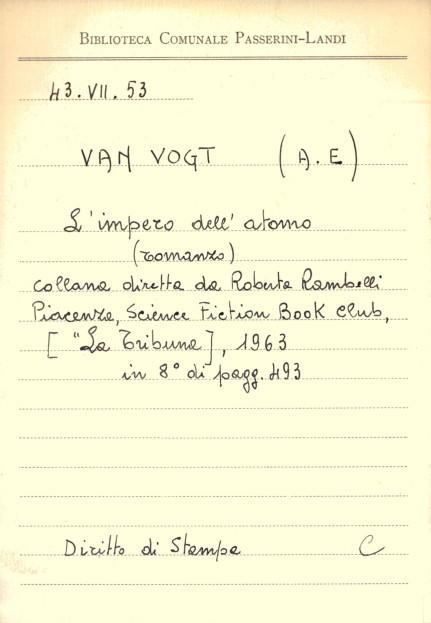 BIBLIOTECA COMUNALE PASSERINI-LANDI
43.VII.53
VAN VOGT (A.E)
L'impero dell'atomo
(romanzo)
collana diretta da Roberta Rambelli
Piacenza, Science Fiction Book Club,
["La Tribuna], 1963
in 8° di pagg. 493
Diritto di Stampa C